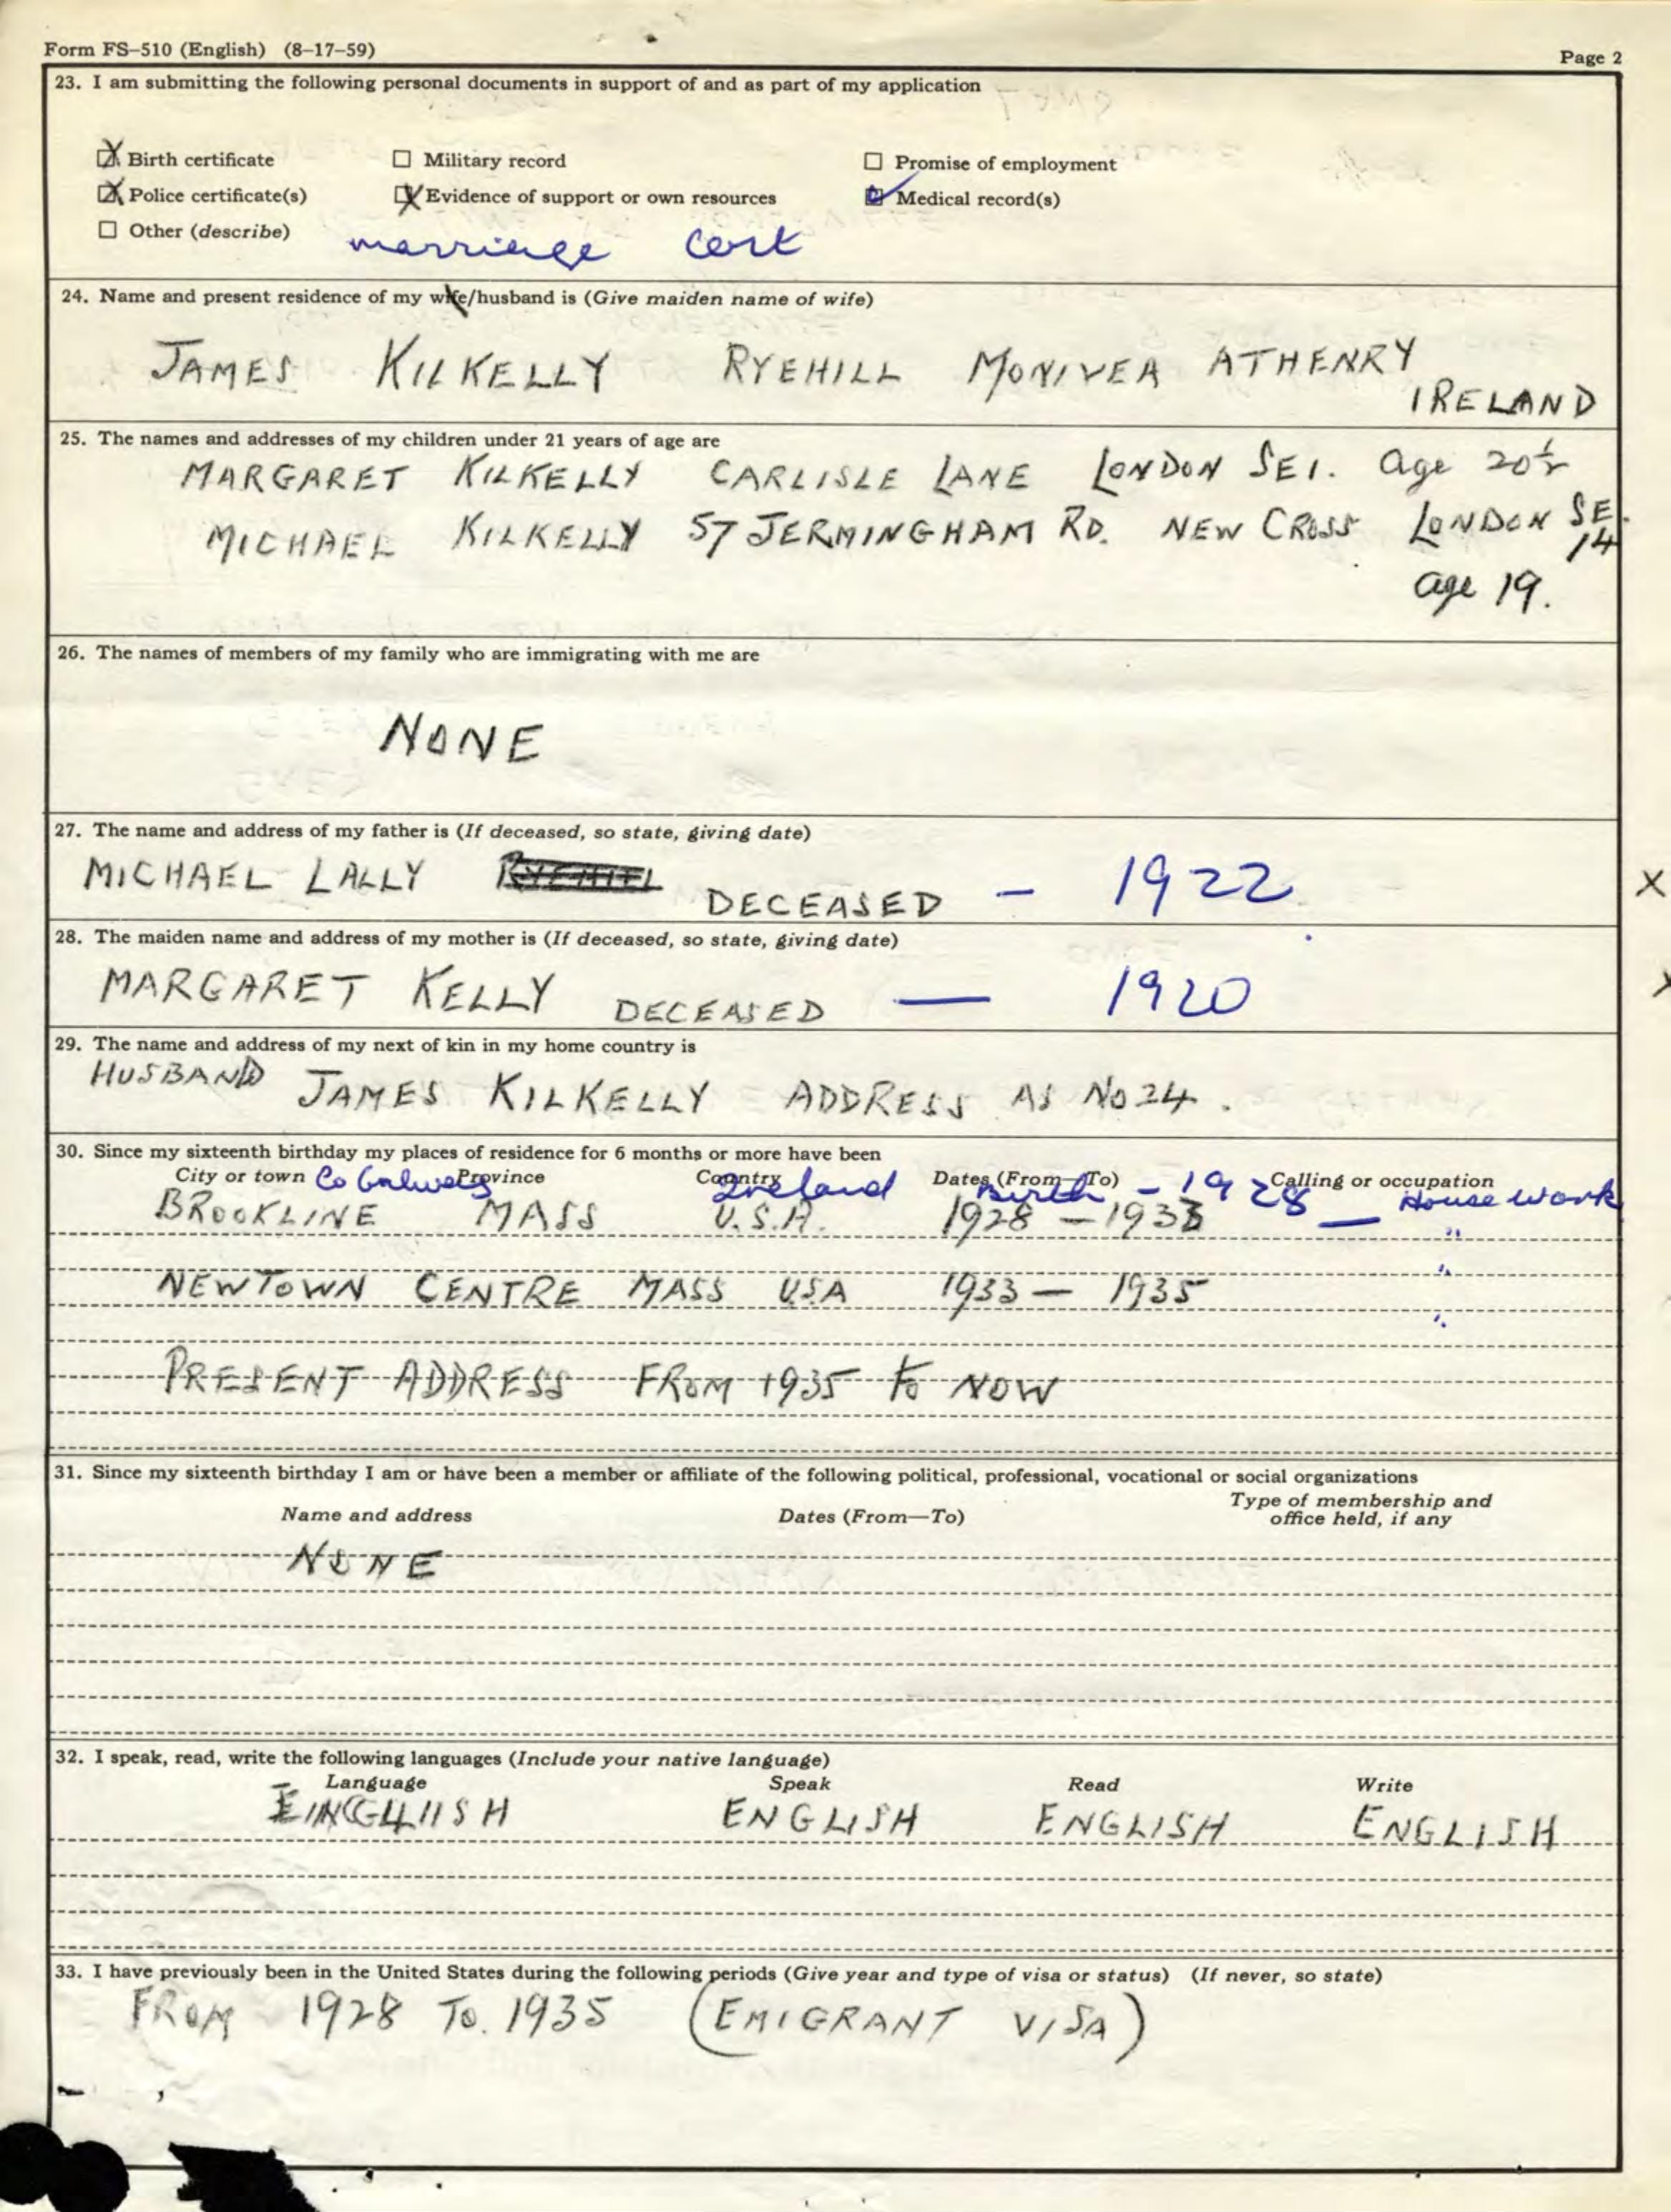 Form FS-510 (English) (8-17-59)
Page 2
23. I am submitting the following personal documents in support of and as part of my application
Birth certificate Military record Promise of employment
Police certificate(s) Evidence of support or own resources Medical record(s)
Other (describe) marriage cert
24. Name and present residence of my wife/husband is (Give maiden name of wife)
JAMES KILKELLY RYEHILL MONIVEA ATHENRY
IRELAND
25. The names and addresses of my children under 21 years of age are
MARGARET KILKELLY CARLISLE LANE LONDON SE1. age 20½
MICHAEL KILKELLY 57 JERMINGHAM RD. NEW CROSS LONDON SE.
14
age 19.
26. The names of members of my family who are immigrating with me are
NONE
27. The name and address of my father is (If deceased, so state, giving date)
MICHAEL LALLY RYEHILL DECEASED – 1922 X
28. The maiden name and address of my mother is (If deceased, so state, giving date)
MARGARET KELLY DECEASED — 1920 X
29. The name and address of my next of kin in my home country is
HUSBAND JAMES KILKELLY ADDRESS AS No 24.
30. Since my sixteenth birthday my places of residence for 6 months or more have been
City or town Province Country Dates (From—To) Calling or occupation
Co Galway Ireland Birth – 1928 — House work
BROOKLINE MASS U.S.A. 1928 – 1933 "
"
NEWTOWN CENTRE MASS USA 1933 – 1935
"
PRESENT ADDRESS FROM 1935 to NOW
31. Since my sixteenth birthday I am or have been a member or affiliate of the following political, professional, vocational or social organizations
Name and address Dates (From—To) Type of membership and
office held, if any
NONE
32. I speak, read, write the following languages (Include your native language)
Language Speak Read Write
ENGLISH ENGLISH ENGLISH ENGLISH
33. I have previously been in the United States during the following periods (Give year and type of visa or status) (If never, so state)
FROM 1928 To. 1935 (EMIGRANT VISA)